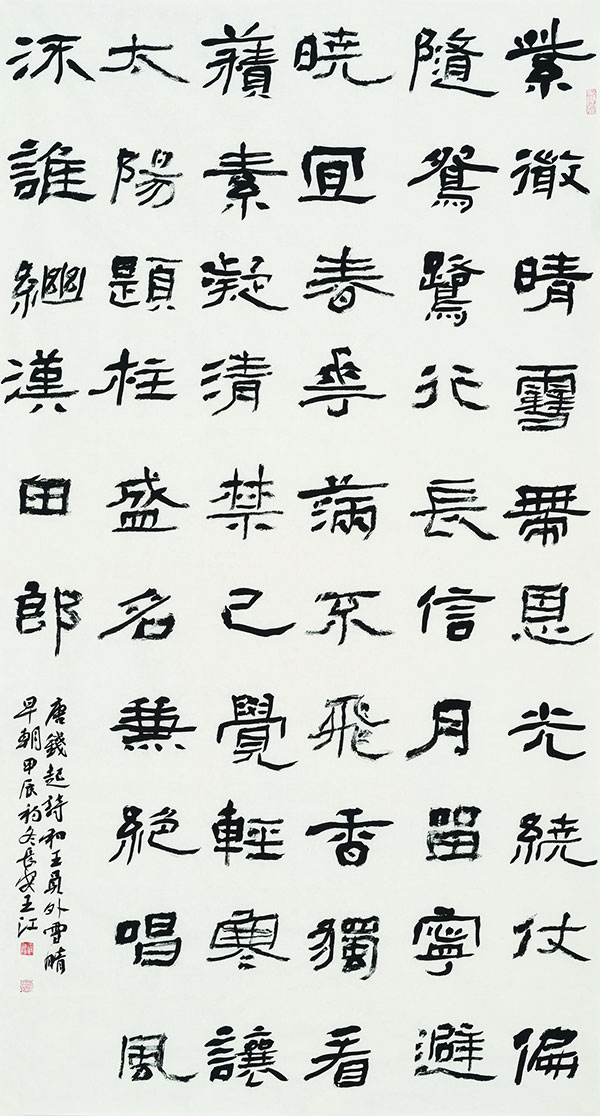 紫微晴雪帶恩光繞仗偏
隨鴛鷺行長信月留寧避
曉宜春華滿不飛香獨看
積素凝清禁已覺輕寒讓
太陽題柱盛名兼絕唱風
流誰繼漢田郎
唐錢起詩和王員外雪晴
早朝甲辰初冬長安王江